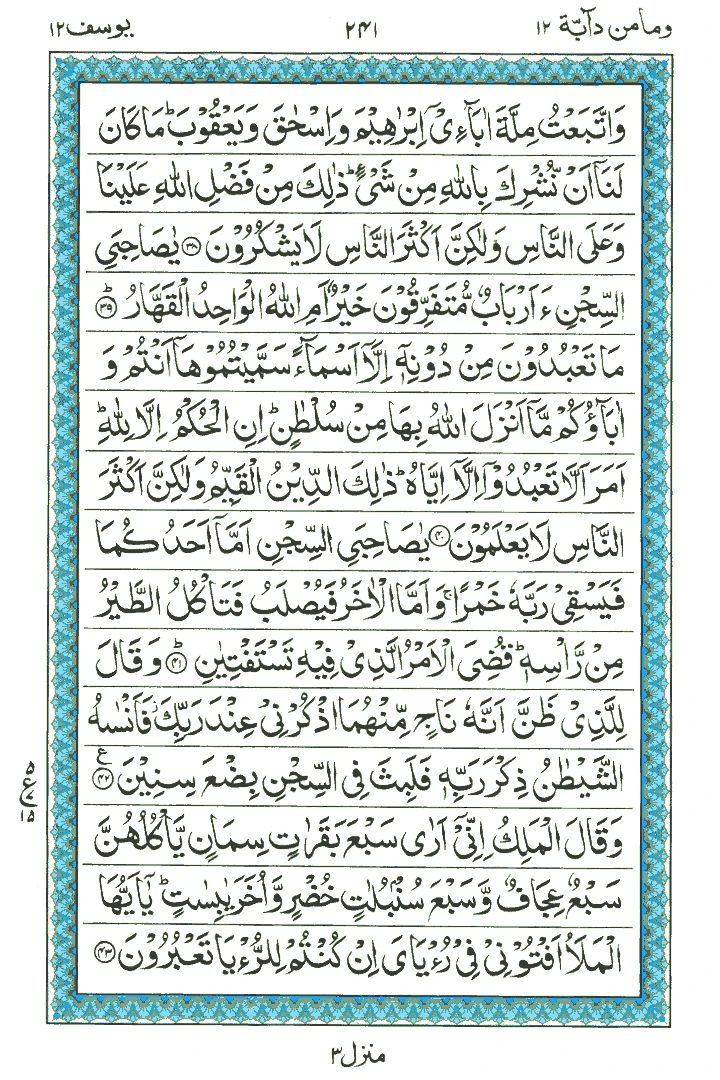 ومامن دآبّة ١٢ ٢٤١ يوسف ١٢
وَاتَّبَعْتُ مِلَّةَ اٰبَآءِىْٓ اِبْرٰهِيْمَ وَاِسْحٰقَ وَيَعْقُوْبَ ؕ مَا كَانَ
لَنَاۤ اَنْ نُّشْرِكَ بِاللّٰهِ مِنْ شَىْءٍ ؕ ذٰلِكَ مِنْ فَضْلِ اللّٰهِ عَلَيْنَا
وَعَلَى النَّاسِ وَلٰكِنَّ اَكْثَرَ النَّاسِ لَا يَشْكُرُوْنَ ﴿۳۸﴾ يٰصَاحِبَىِ
السِّجْنِ ءَاَرْبَابٌ مُّتَفَرِّقُوْنَ خَيْرٌ اَمِ اللّٰهُ الْوَاحِدُ الْقَهَّارُ ؕ ﴿۳۹﴾
مَا تَعْبُدُوْنَ مِنْ دُوْنِهٖۤ اِلَّاۤ اَسْمَآءً سَمَّيْتُمُوْهَاۤ اَنْتُمْ وَ
اٰبَآؤُكُمْ مَّاۤ اَنْزَلَ اللّٰهُ بِهَا مِنْ سُلْطٰنٍ ؕ اِنِ الْحُكْمُ اِلَّا لِلّٰهِ ؕ
اَمَرَ اَلَّا تَعْبُدُوْۤا اِلَّاۤ اِيَّاهُ ؕ ذٰلِكَ الدِّيْنُ الْقَيِّمُ وَلٰكِنَّ اَكْثَرَ
النَّاسِ لَا يَعْلَمُوْنَ ﴿۴۰﴾ يٰصَاحِبَىِ السِّجْنِ اَمَّاۤ اَحَدُكُمَا
فَيَسْقِىْ رَبَّهٗ خَمْرًا ۚ وَاَمَّا الْاٰخَرُ فَيُصْلَبُ فَتَاْكُلُ الطَّيْرُ
مِنْ رَّاْسِهٖ ؕ قُضِىَ الْاَمْرُ الَّذِىْ فِيْهِ تَسْتَفْتِيٰنِ ؕ ﴿۴۱﴾ وَقَالَ
لِلَّذِىْ ظَنَّ اَنَّهٗ نَاجٍ مِّنْهُمَا اذْكُرْنِىْ عِنْدَ رَبِّكَ فَاَنْسٰىهُ
الشَّيْطٰنُ ذِكْرَ رَبِّهٖ فَلَبِثَ فِى السِّجْنِ بِضْعَ سِنِيْنَ ع ﴿۴۲﴾
٥ ع ٧ ١٥
وَقَالَ الْمَلِكُ اِنِّىْۤ اَرٰى سَبْعَ بَقَرٰتٍ سِمَانٍ يَّاْكُلُهُنَّ
سَبْعٌ عِجَافٌ وَّسَبْعَ سُنْۢبُلٰتٍ خُضْرٍ وَّاُخَرَ يٰبِسٰتٍ ؕ يٰۤاَيُّهَا
الْمَلَاُ اَفْتُوْنِىْ فِىْ رُءْيَاىَ اِنْ كُنْتُمْ لِلرُّءْيَا تَعْبُرُوْنَ ﴿۴۳﴾
منزل ٣